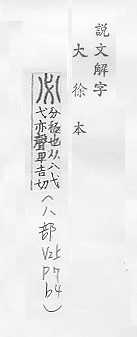 説文解字
大徐本
必
分極也从八弋
弋亦聲卑吉切
(八部V2上P7b4)